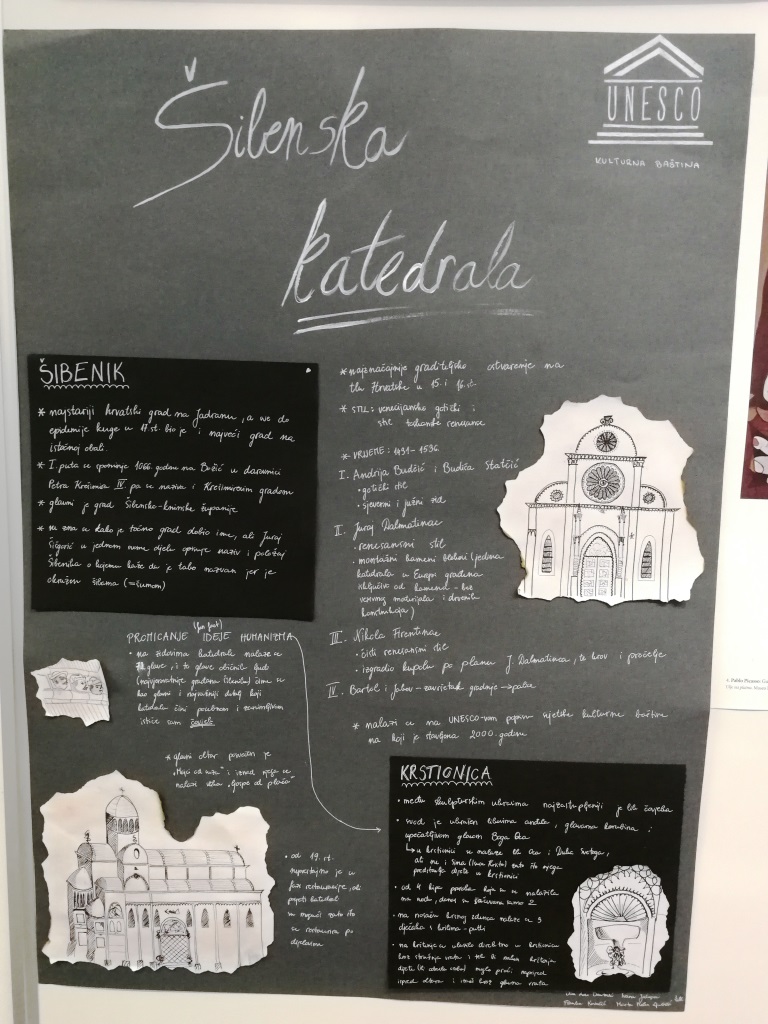 Šibenska
katedrala
UNESCO
KULTURNA BAŠTINA
ŠIBENIK
* najstariji hrvatski grad na Jadranu, a sve do
epidemije kuge u 17. st. bio je i najveći grad na
istočnoj obali.
* I. puta se spominje 1066 godine na Božić u darovnici
Petra Krešimira IV. pa se naziva i Krešimirovim gradom
* glavni je grad Šibensko-kninske županije
* ne zna se kako je točno grad dobio ime, ali Juraj
Šižgorić u jednom svome djelu opisuje naziv i položaj
Šibenika o kojemu kaže da je tako nazvan jer je
okružen šibama (=šumom)
* najznačajnije graditeljsko ostvarenje na
tlu Hrvatske u 15. i 16. st.
* STIL: venecijansko gotički i
stil toskanske renesanse
* VRIJEME: 1431-1536.
I. Andrija Budčić i Budiša Statčić
• gotički stil
• sjeverni i južni zid
II. Juraj Dalmatinac
• renesansni stil
• montažni kameni blokovi (jedina
katedrala u Europi građena
isključivo od kamena - bez
vezivnog materijala i drvenih
konstrukcija)
III. Nikola Firentinac
• čisti renesansni stil
• izgradio kupolu po planu J. Dalmatinca, te krov i pročelje
IV. Bartol i Jakov - završetak gradnje
* nalazi se na UNESCO-vom popisu svjetske kulturne baštine
na koji je stavljena 2000. godine
(fun fact)
PROMICANJE IDEJE HUMANIZMA
• na zidovima katedrale nalaze se
glave, i to glave običnih ljudi
kao glavni i najvažniji dukaj koji
katedralu čini posebnom i zanimljivom
ističe sam čovjek
* glavni oltar posvećen je
nalazi slika „Gospe od plača"
• od 19. st.
neprestano je u
fazi restauracije, ali
posjeti katedrali
su mogući zato što
se restaurira po
dijelovima
KRSTIONICA
• među skulpturskim ukrasima najzastupljeniji je lik čovjeka
• svod je ukrašen likovima anđela, glavama kerubina i
upečatljivom glavom Boga Oca
↳ u krstionici se nalaze lik Oca i Duha Svetoga,
ali ne i Sina (Isus Krist) zato što njega
predstavlja dijete u krstionici
• od 4 kipa proroka koja su se nalazila
na svodu, danas su sačuvana samo 2
• na nosaču krsnog zdenca nalaze se 3
dječaka s krilima - putti
• na krštenje se ulazilo direktno u krstionicu
kroz stražnja vrata i tek bi nakon krštenja
dijete (ili odrasla osoba) moglo proći naprijed
ispred oltara i izaći kroz glavna vrata
4. Pablo Picasso: